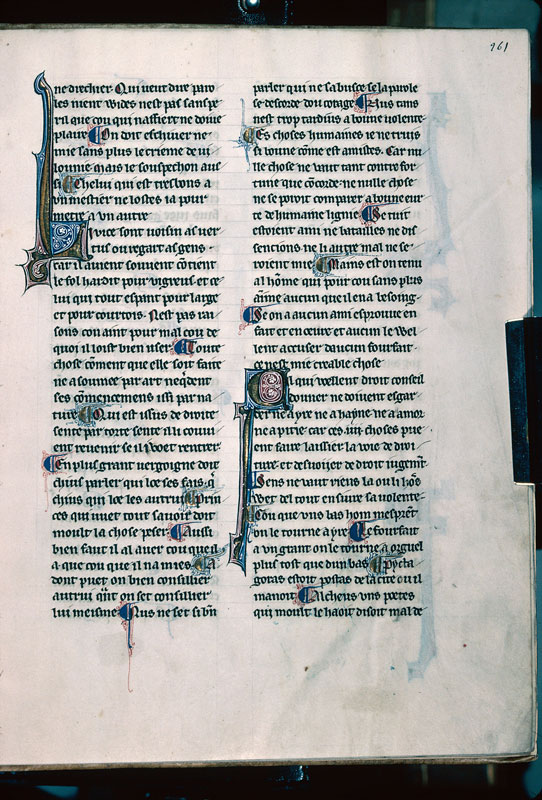 961
ne trechier Qui veut dire paro
les ment wides nest pas sans pe
ril que cou qui nassiert ne doiue
plaire On doit eschiuer ne
mie sans plus le crieme de vi
lounie mais le souspechon aus
si Chelui qui est tresbons a
vn mestier ne lostes ia pour
metre a vn autre
Li vice sont voisin as ver
tus ou regart as gens
car il auient souuent cōtient
le fol hardit pour vigreus et ce
lui qui tout espant pour large
et pour courtois Nest pas rai
sons con aint pour mal cou de
quoi il loist bien vser Toute
chose cōment que elle soit faite
ne a soumee par art neq̄dent
ses cōmencemens issi par na
ture Qui est issus de droite
sente par torte sente li couui
ent reuenir se il i voet rentrer
En plus grant vergoigne doit
chius parler qui loe ses fais q̄
chius qui loe les autrui Prin
ces qui vuet tout sauoir doit
moult la chose peser Aussi
bien faut il al auer cou que il
a que cou que il na mies La
dont puet on bien consillier
autrui q̄nt on set consillier
lui meisme Nus ne set si bn̄
parler qui ne sabusce se la parole
se descorde dou corage Nus tans
nest trop tardius a boune volente
Es choses humaines ie ne truis
si boune cōme est amistes Car nu
lle chose ne vaut tant contre for
tune que cōcorde ne nulle chose
ne se puet comparer a boun eur
te de humaine lignie Se tuit
estoient ami ne batailles ne dis
sencions ne li autre mal ne se
roient mie Mains est on tenu
al hōme qui pour cou sans plus
aime aucun que il en a besoing
Se on a aucun ami esprouue en
fait et en ceure et aucun le voel
lent accuser daucun fourfait
ce nest mie creable chose
Cil qui voellent droit conseil
donner ne doiuent esgar
der ne a yre ne a hayne ne a amor
ne a pitie car ces iiii choses prie
ent faire laissier la voie de droi
ture et desuoijer de droit iugemt̄
Sens ne vaut riens la ou li hōs
voet del tout ensiure sa volente
Cou que vns bas hom mesprent
on le tourne a yre Le fourfait
a vn grant on le tourne a orguel
plus tost que dun bas Pycta
goras estoit postas de la cite ou il
manoit Alcheus vns poetes
qui moult le haoit disoit mal de